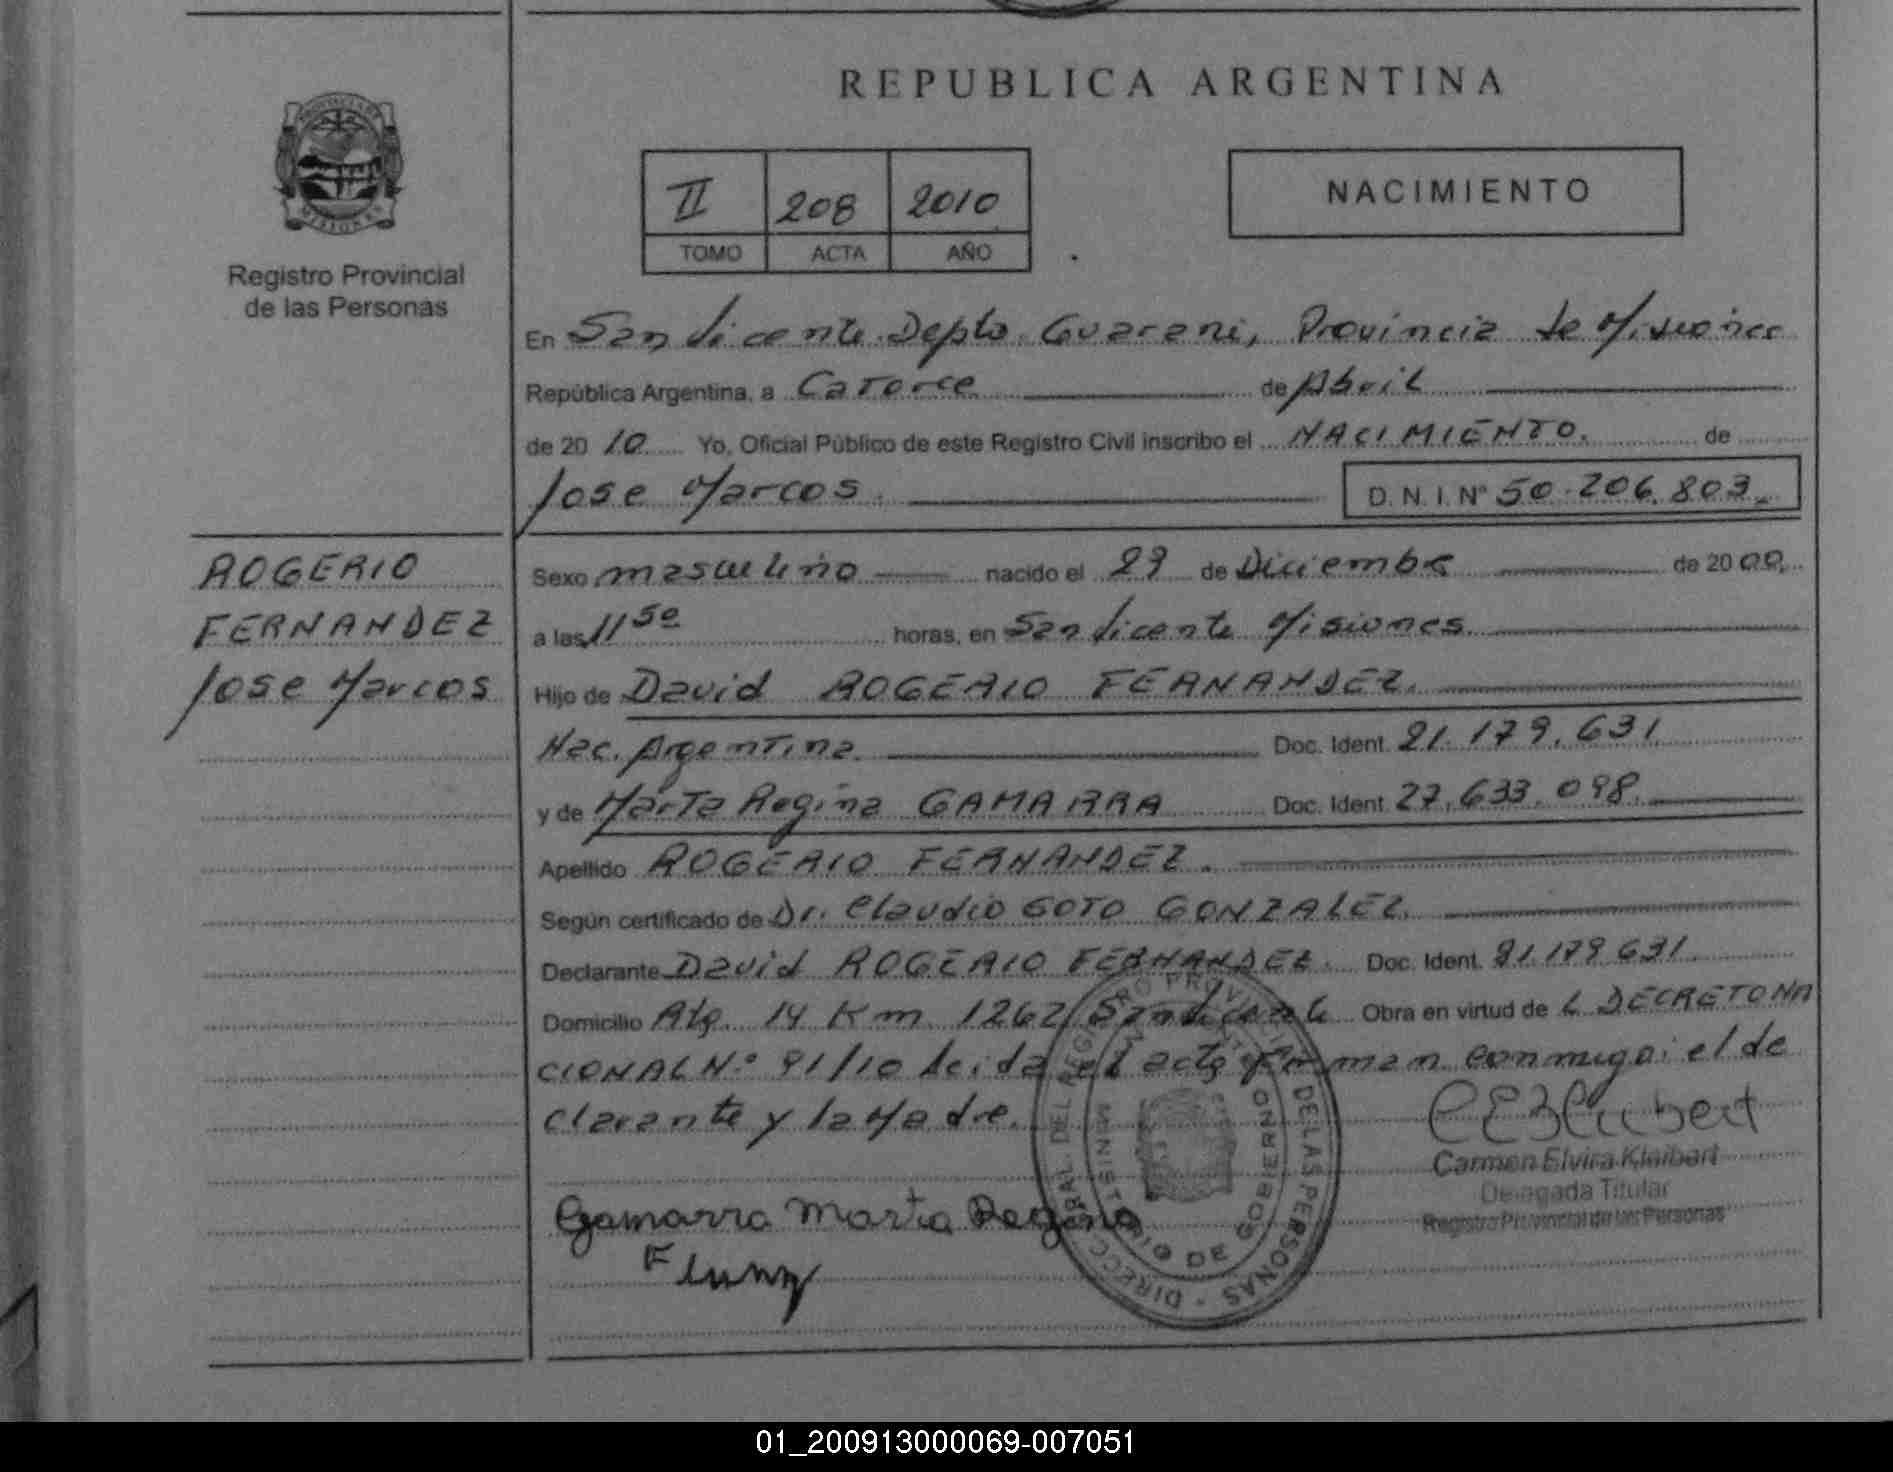 REPUBLICA ARGENTINA
PROVINCIA DE
MISIONES
Registro Provincial
de las Personas
II 208 2010
TOMO ACTA AÑO
NACIMIENTO
En San Vicente Depto. Guarani, Provincia de Misiones
República Argentina, a Catorce de Abril
de 20 10 Yo, Oficial Público de este Registro Civil inscribo el NACIMIENTO. de
Jose Marcos. D. N. I. N° 50.206.803
ROGERIO
FERNANDEZ
Jose Marcos
Sexo masculino nacido el 29 de Diciembre de 2000
a las 11 50 horas, en San Vicente Misiones
Hijo de David ROGERIO FERNANDEZ.
Nac. Argentina. Doc. Ident. 21.179.631
y de Marta Regina GAMARRA Doc. Ident. 27.633.098.
Apellido ROGERIO FERNANDEZ.
Según certificado de Dr. Claudio SOTO GONZALEZ.
Declarante David ROGERIO FERNANDEZ. Doc. Ident. 21.179 631.
Domicilio Km 1262 San Vicente Obra en virtud de L DECRETO NA
CIONAL N° 91/10 Leida el acta firman conmigo: el de
clarante y la Madre.
Carmen Elvira Klaibert
Delegada Titular
Registro Provincial de las Personas
Gamarra Marta Regina
DIRECC RAL. DEL REGISTRO PROVINCIAL DE LAS PERSONAS
MINISTERIO DE GOBIERNO
01_200913000069-007051